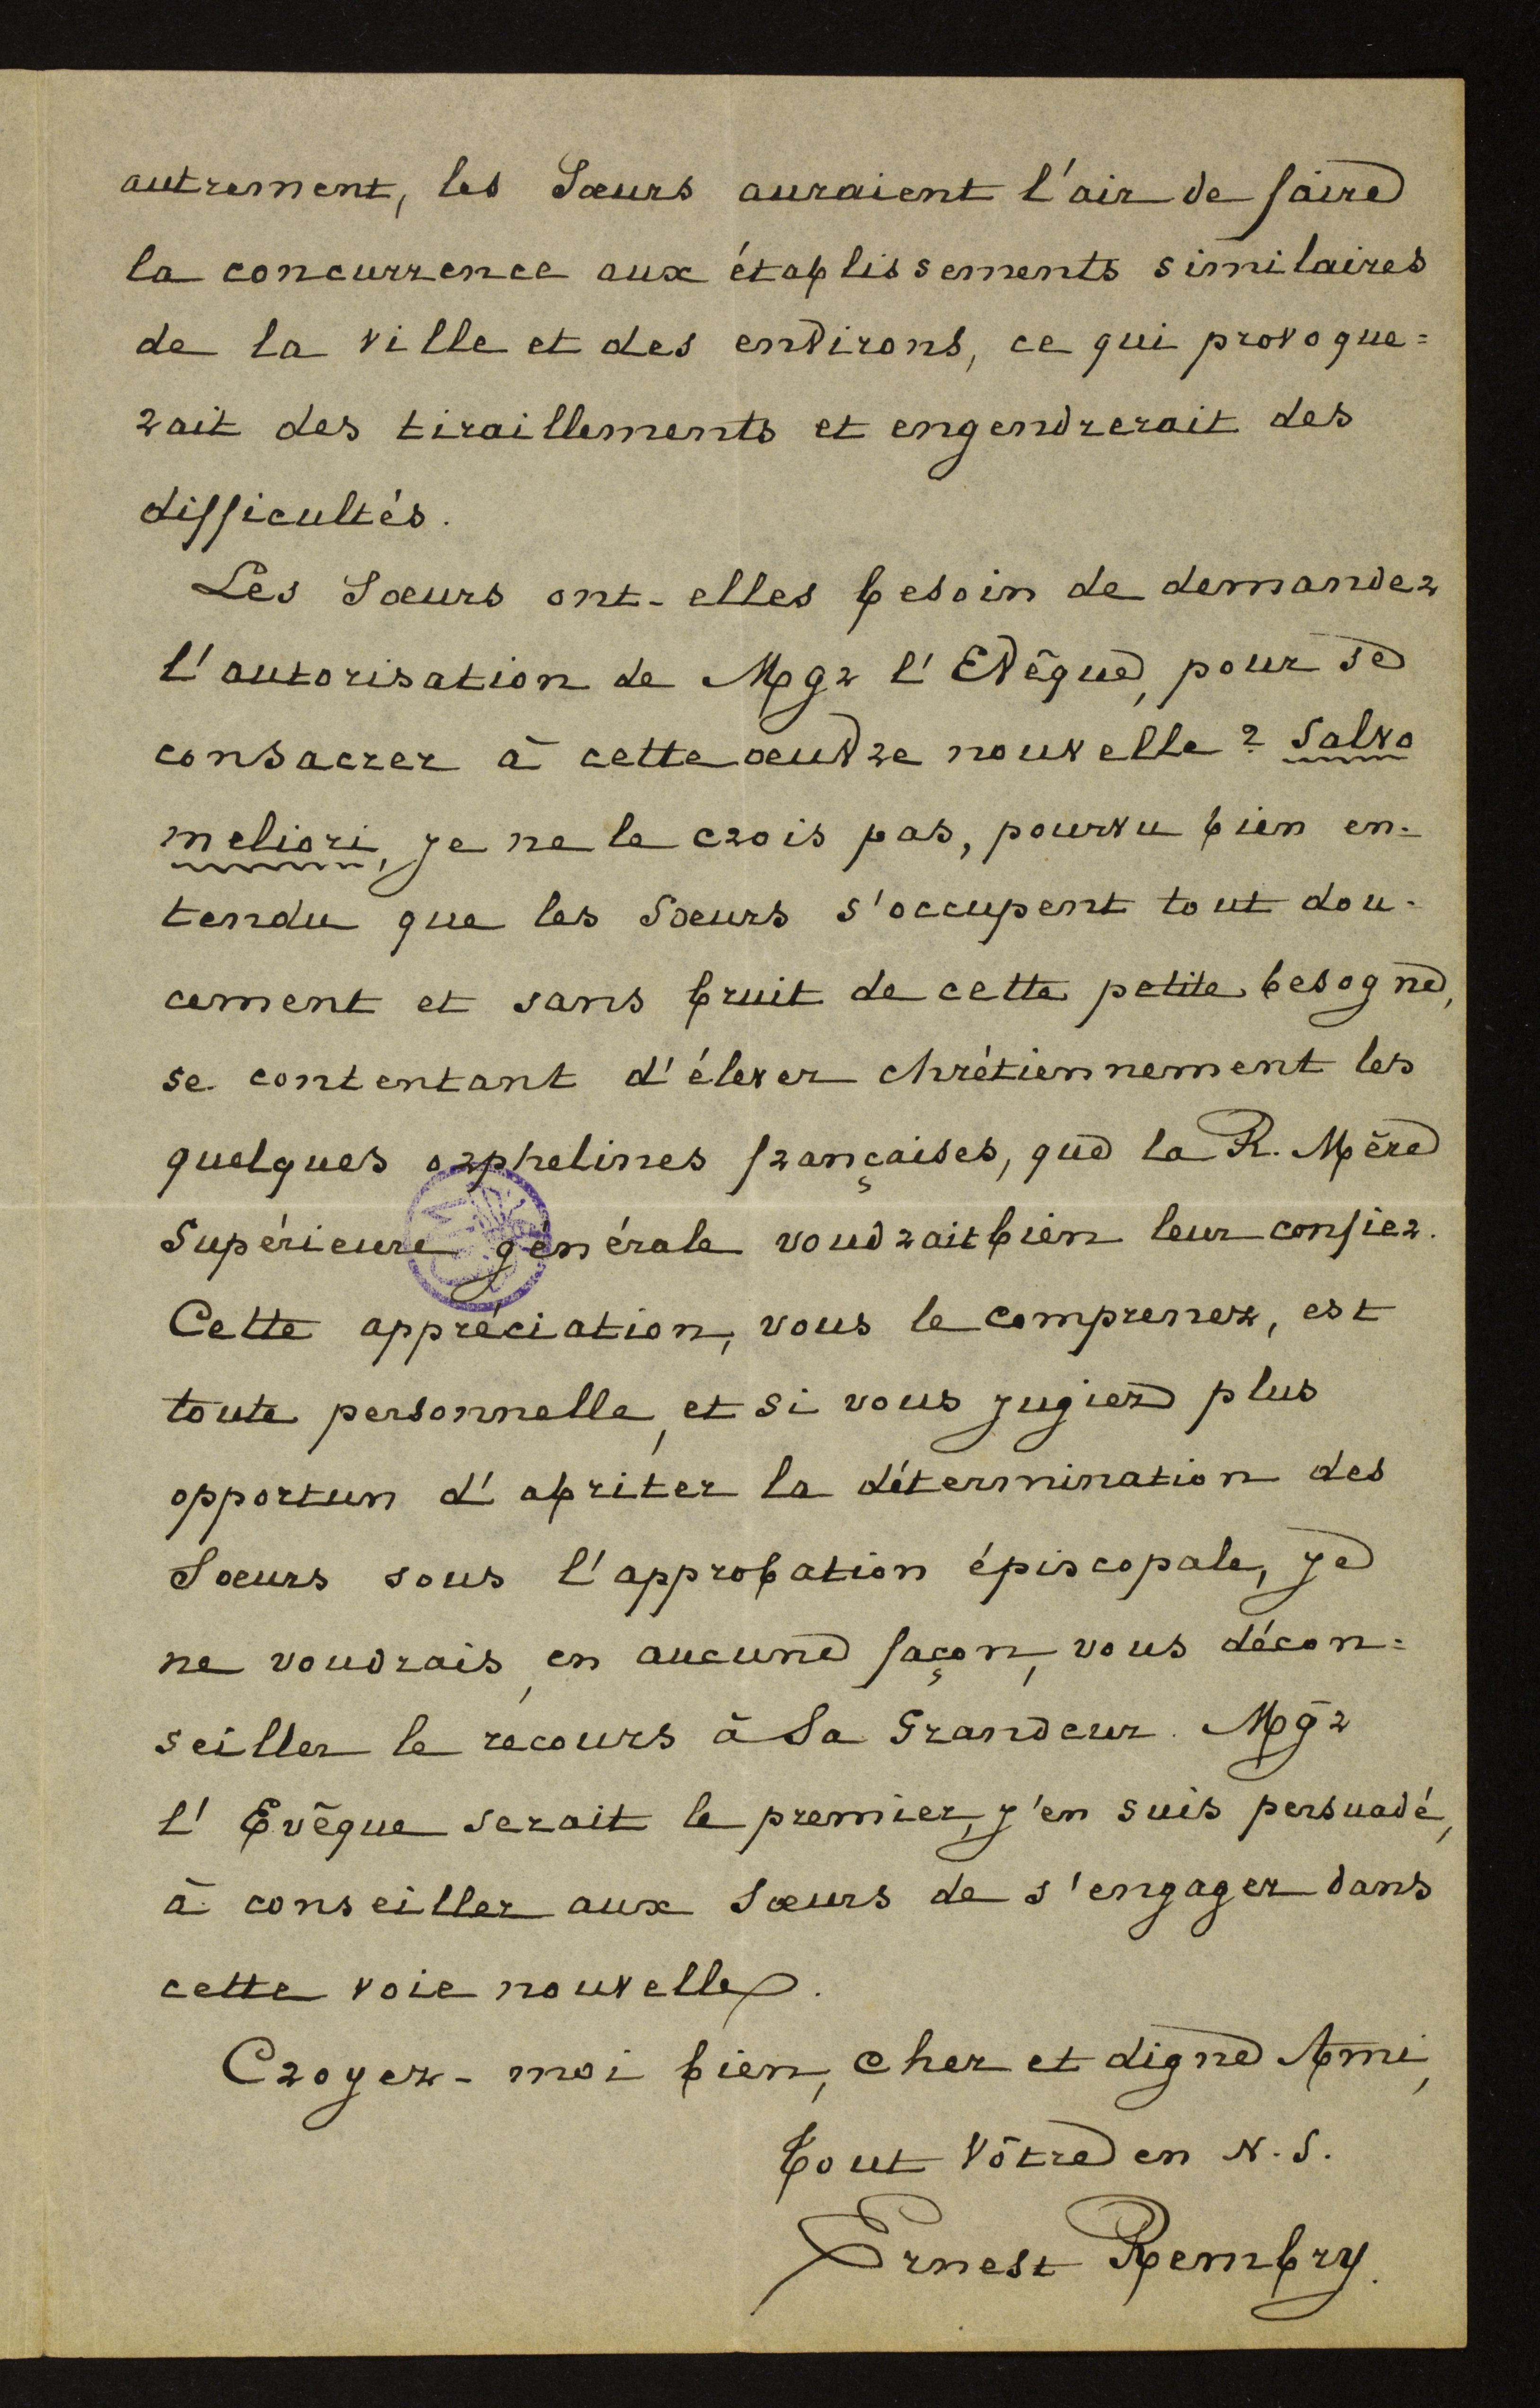 autrement, les Sœurs auraient l'air de faire
la concurrence aux établissements similaires
de la ville et des environs, ce qui provoque=
rait des tiraillements et engendrerait des
difficultés.
Les Sœurs ont-elles besoin de demander
l'autorisation de Mgr l'Evêque, pour se
consacrer à cette œuvre nouvelle? Salvo
meliori, je ne le crois pas, pourvu bien en-
tendu que les Sœurs s'occupent tout dou-
cement et sans bruit de cette petite besogne,
se contentant d'élever chrétiennement les
quelques orphelines françaises, que la R. Mère
Supérieure générale voudrait bien leur confier.
Cette appréciation, vous le comprenez, est
toute personnelle, et si vous jugiez plus
opportun d'abriter la détermination des
Sœurs sous l'approbation épiscopale, je
ne voudrais, en aucune façon, vous décon=
seiller le recours à Sa Grandeur. Mgr
l'Evêque serait le premier, j'en suis persuadé,
à conseiller aux Sœurs de s'engager dans
cette voie nouvelle.
Croyez-moi bien, cher et digne Ami,
Tout Vôtre en N.S.
Ernest Rembry.